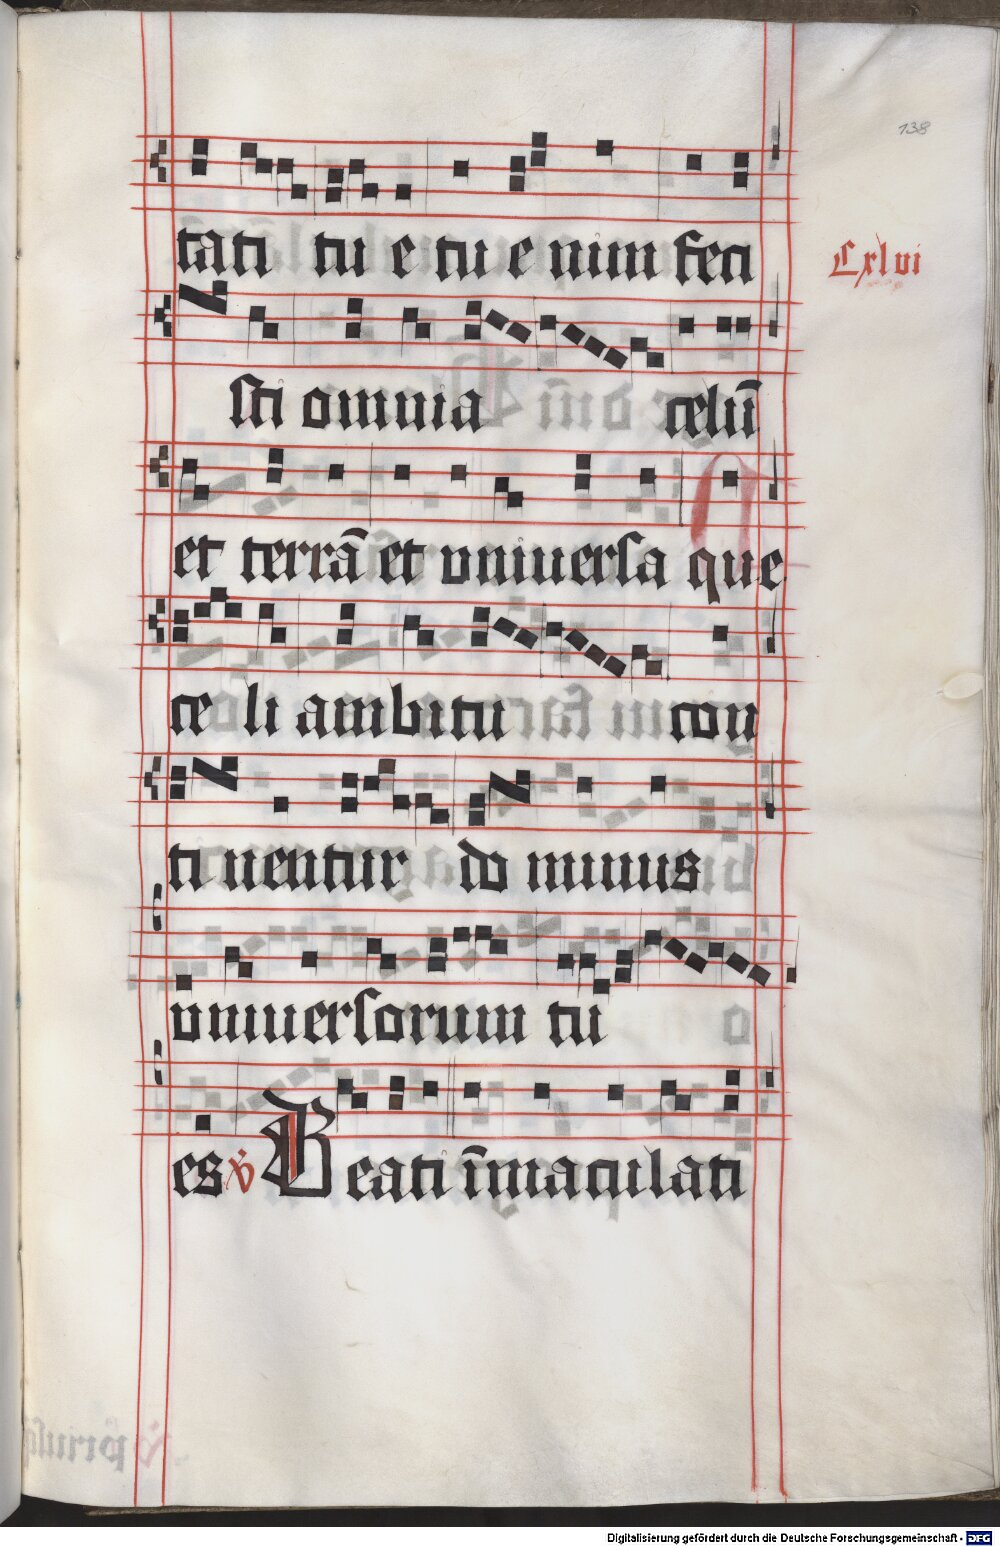 138
tati tu e tu e nim feci
Cxlvi
sti omnia celū
et terrā et vniuersa que
ce li ambitu con
ti nentur do minus
vniuersorum tu
es ℣ Beati īmaculati
Digitalisierung gefördert durch die Deutsche Forschungsgemeinschaft - DFG